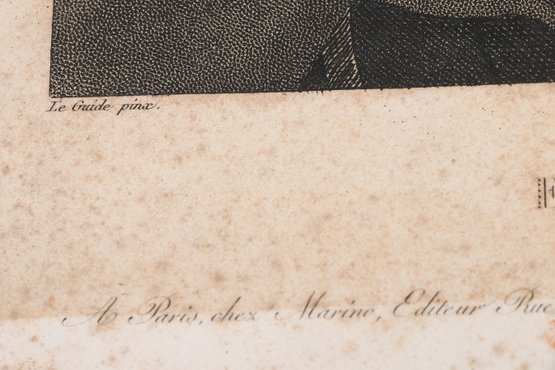 Le Guide pinx.
A Paris, chez Marino, Editeur Rue